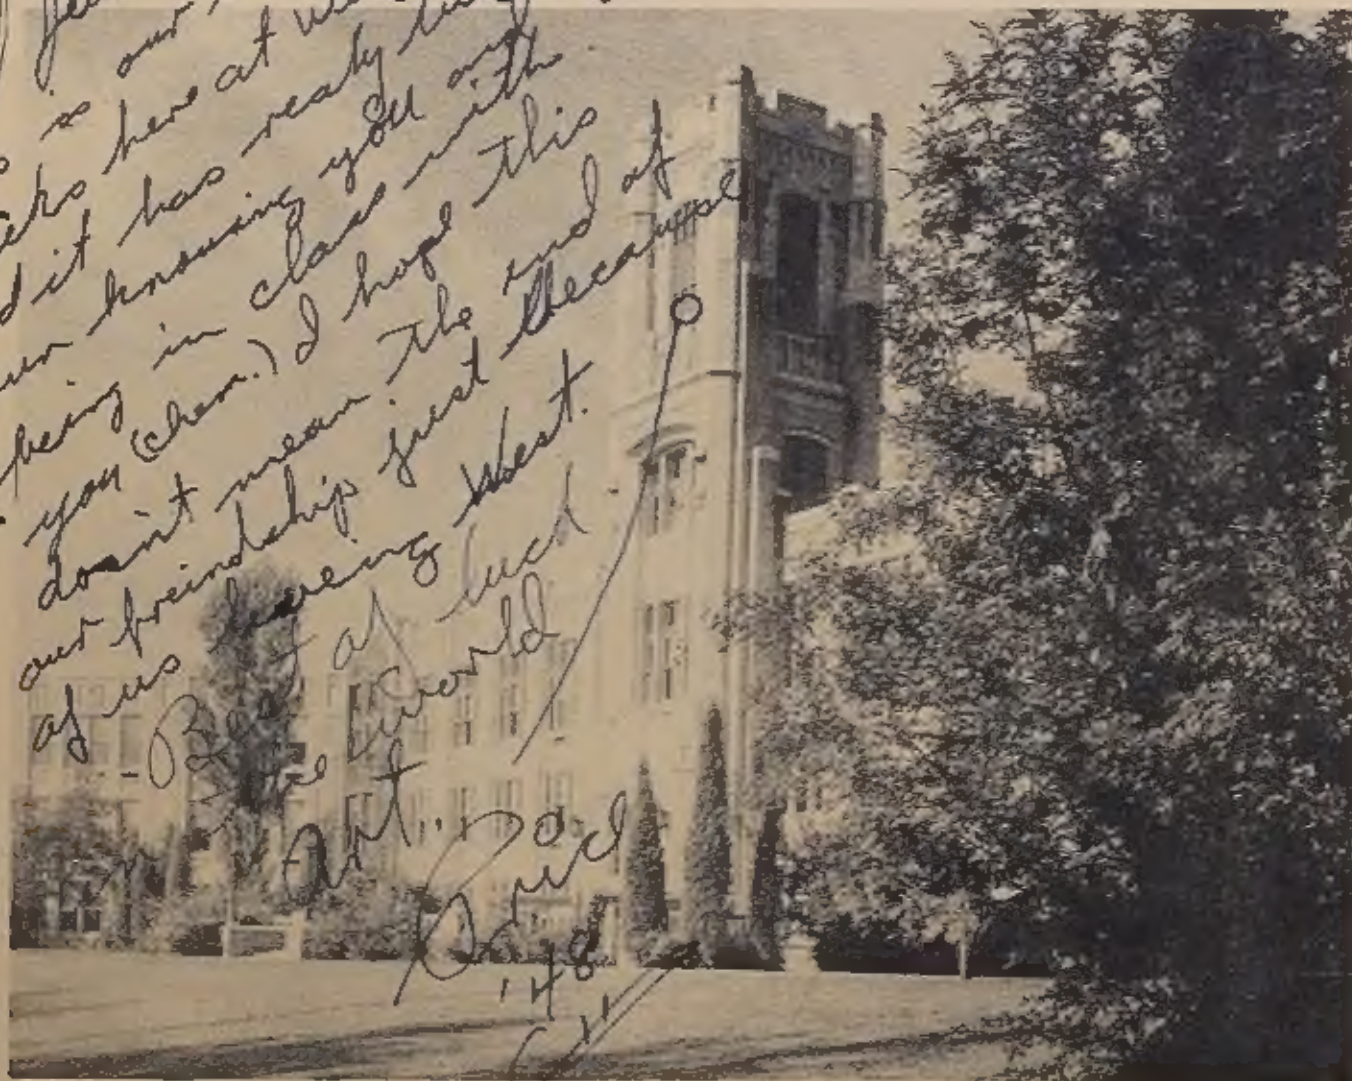 is our
here at
it has realy
knowing you and
being in class with
you (chem.) I hope this
dosn't mean the end of
our freindship just because
of us leaveing West.
Best of luck
World
Art.
'48